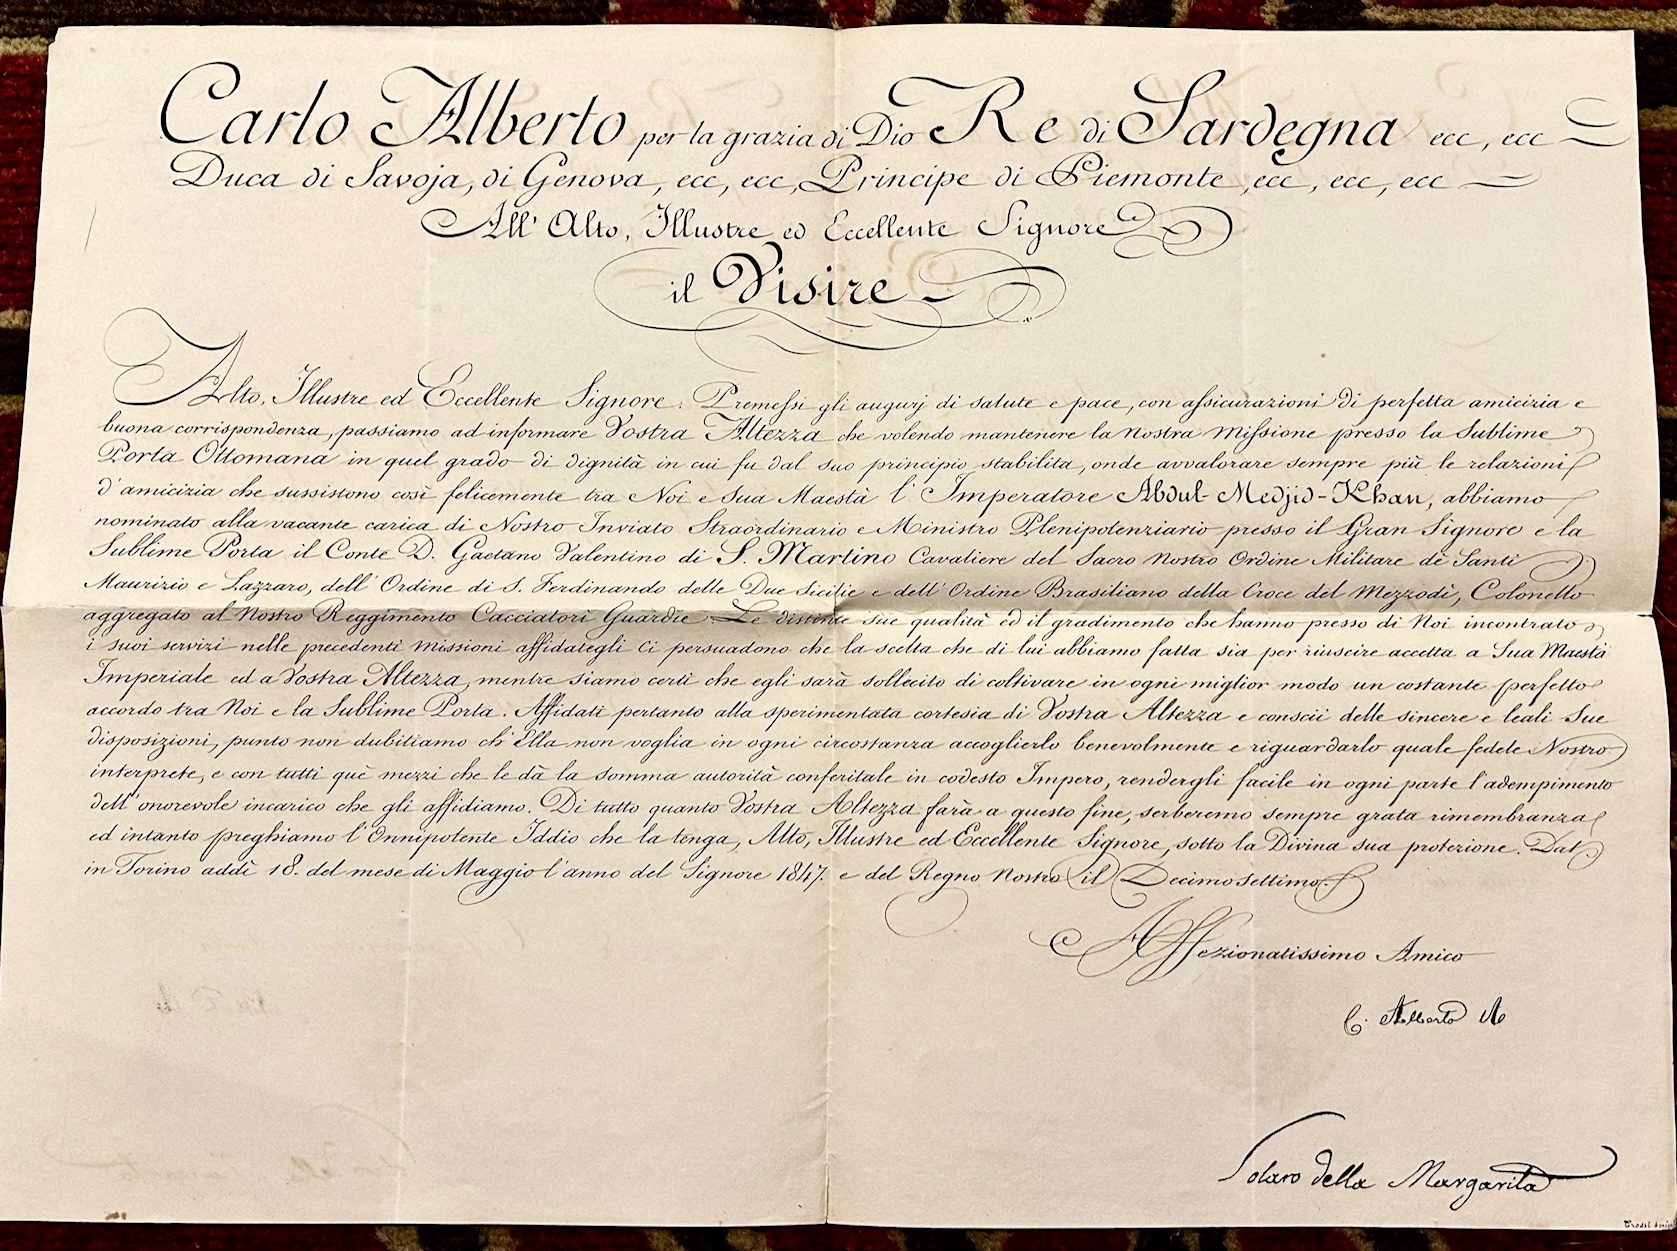 Carlo Alberto per la grazia di Dio Re di Sardegna ecc, ecc
Duca di Savoja, di Genova, ecc, ecc, Principe di Piemonte, ecc, ecc, ecc
All' Alto, Illustre ed Eccellente Signore
il Visire
Alto, Illustre ed Eccellente Signore. Premessi gli augurj di salute e pace, con assicurazioni di perfetta amicizia e
buona corrispondenza, passiamo ad informare Vostra Altezza che volendo mantenere la nostra Missione presso la Sublime
Porta Ottomana in quel grado di dignità in cui fu dal suo principio stabilita, onde avvalorare sempre più le relazioni
d'amicizia che sussistono così felicemente tra Noi e Sua Maestà l'Imperatore Abdul-Medjid-Khan, abbiamo
nominato alla vacante carica di Nostro Inviato Straordinario e Ministro Plenipotenziario presso il Gran Signore e la
Sublime Porta il Conte D. Gaetano Valentino di S. Martino Cavaliere del Sacro Nostro Ordine Militare de' Santi
Maurizio e Lazzaro, dell'Ordine di S. Ferdinando delle Due Sicilie e dell'Ordine Brasiliano della Croce del Mezzodì, Colonello
aggregato al Nostro Reggimento Cacciatori Guardie. Le distinte sue qualità ed il gradimento che hanno presso di Noi incontrato
i suoi servizi nelle precedenti missioni affidategli ci persuadono che la scelta che di lui abbiamo fatta sia per riuscire accetta a Sua Maestà
Imperiale ed a Vostra Altezza, mentre siamo certi che egli sarà sollecito di coltivare in ogni miglior modo un costante perfetto
accordo tra Noi e la Sublime Porta. Affidati pertanto alla sperimentata cortesia di Vostra Altezza e conscii delle sincere e leali Sue
disposizioni, punto non dubitiamo ch'Ella non voglia in ogni circostanza accoglierlo benevolmente e riguardarlo quale fedele Nostro
interprete, e con tutti què mezzi che le dà la somma autorità conferitale in codesto Impero, rendergli facile in ogni parte l'adempimento
dell'onorevole incarico che gli affidiamo. Di tutto quanto Vostra Altezza farà a questo fine, serberemo sempre grata rimembranza
ed intanto preghiamo l'Onnipotente Iddio che la tenga, Alto, Illustre ed Eccellente Signore, sotto la Divina sua protezione. Dat
in Torino addì 18. del mese di Maggio l'anno del Signore 1847. e del Regno Nostro il Decimosettimo.
Affezionatissimo Amico
C. Alberto
Solaro della Margarita